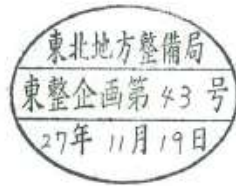 東北地方整備局
東整企画第43号
27年11月19日